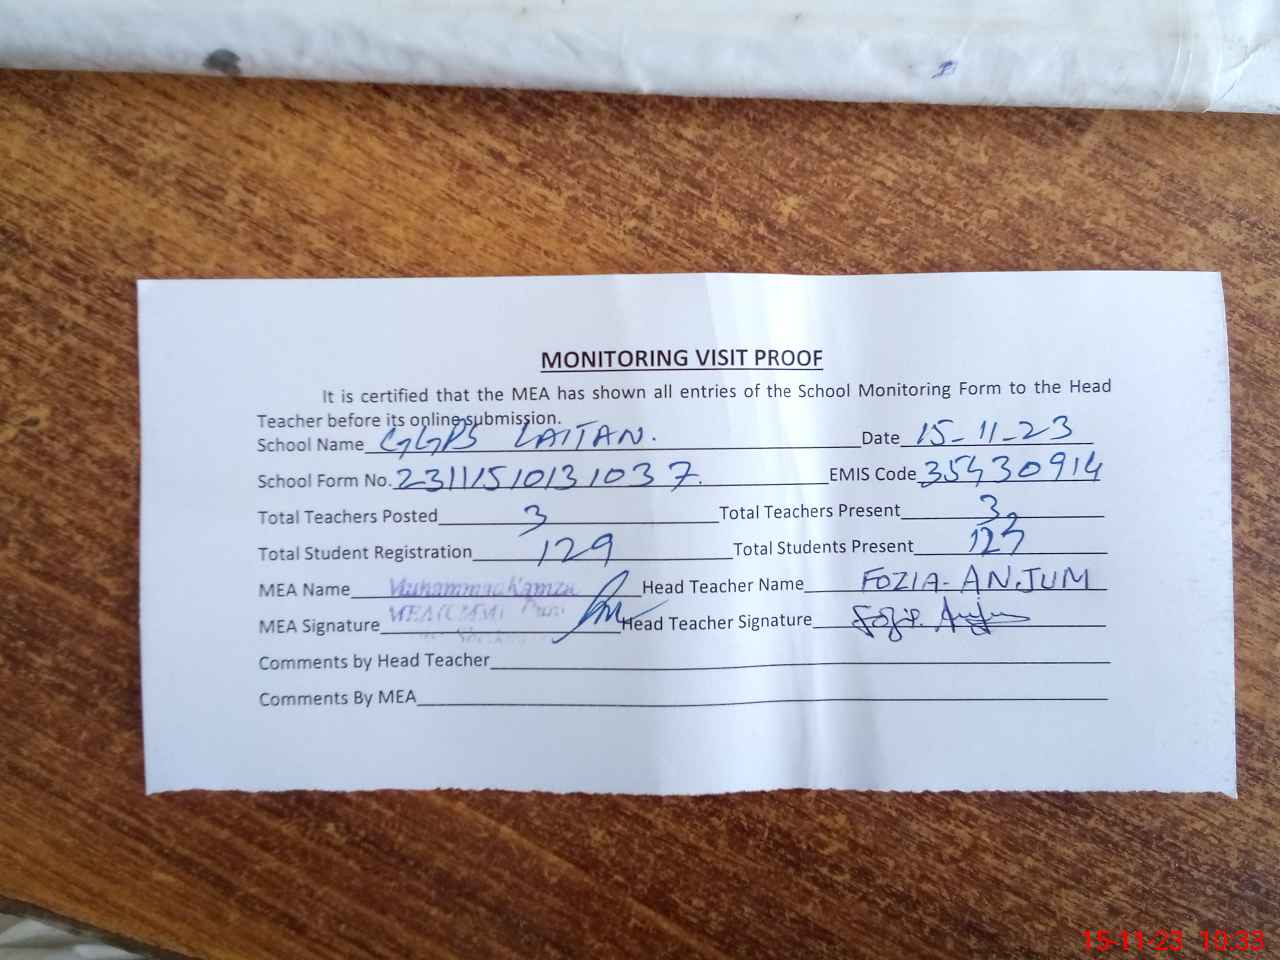 MONITORING VISIT PROOF
It is certified that the MEA has shown all entries of the School Monitoring Form to the Head
Teacher before its online submission.
School Name GGPS LAITAN. Date 15-11-23
School Form No. 23111510131037. EMIS Code 35430914
Total Teachers Posted 3 Total Teachers Present 3
Total Student Registration 129 Total Students Present 123
MEA Name Muhammad Head Teacher Name FOZIA-ANJUM
MEA Signature MEA Head Teacher Signature Fozia Anjum
Comments by Head Teacher
Comments By MEA
15-11-23 10:33